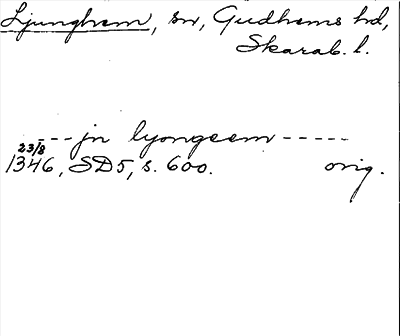 Ljunghem, sn, Gudhems hd,
Skarab. l.
---jn lyongeem-----
23/8
1346, SD5, s. 600. orig.